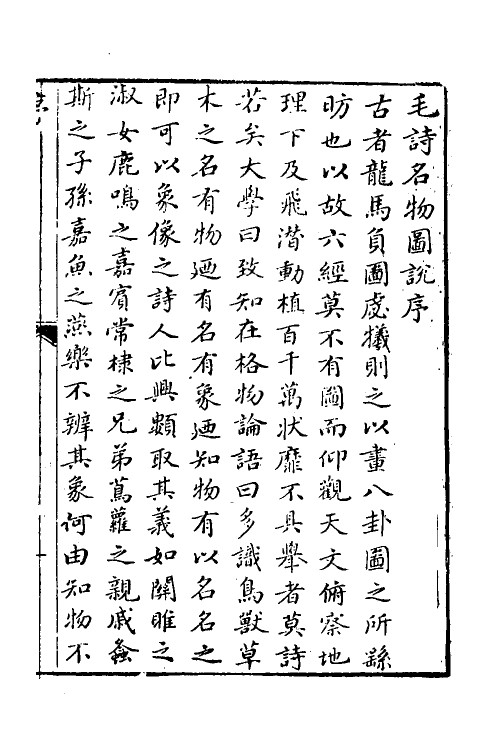 毛詩名物圖說序
古者龍馬負圖虙犧則之以畫八卦圖之所繇
昉也以故六經莫不有圖而仰觀天文俯察地
理下及飛潛動植百千萬狀靡不具舉者莫詩
若矣大學曰致知在格物論語曰多識鳥獸草
木之名有物廼有名有象廼知物有以名名之
即可以象像之詩人比興類取其義如關雎之
淑女鹿鳴之嘉賓常棣之兄弟蔦蘿之親戚螽
斯之子孫嘉魚之燕樂不辨其象何由知物不